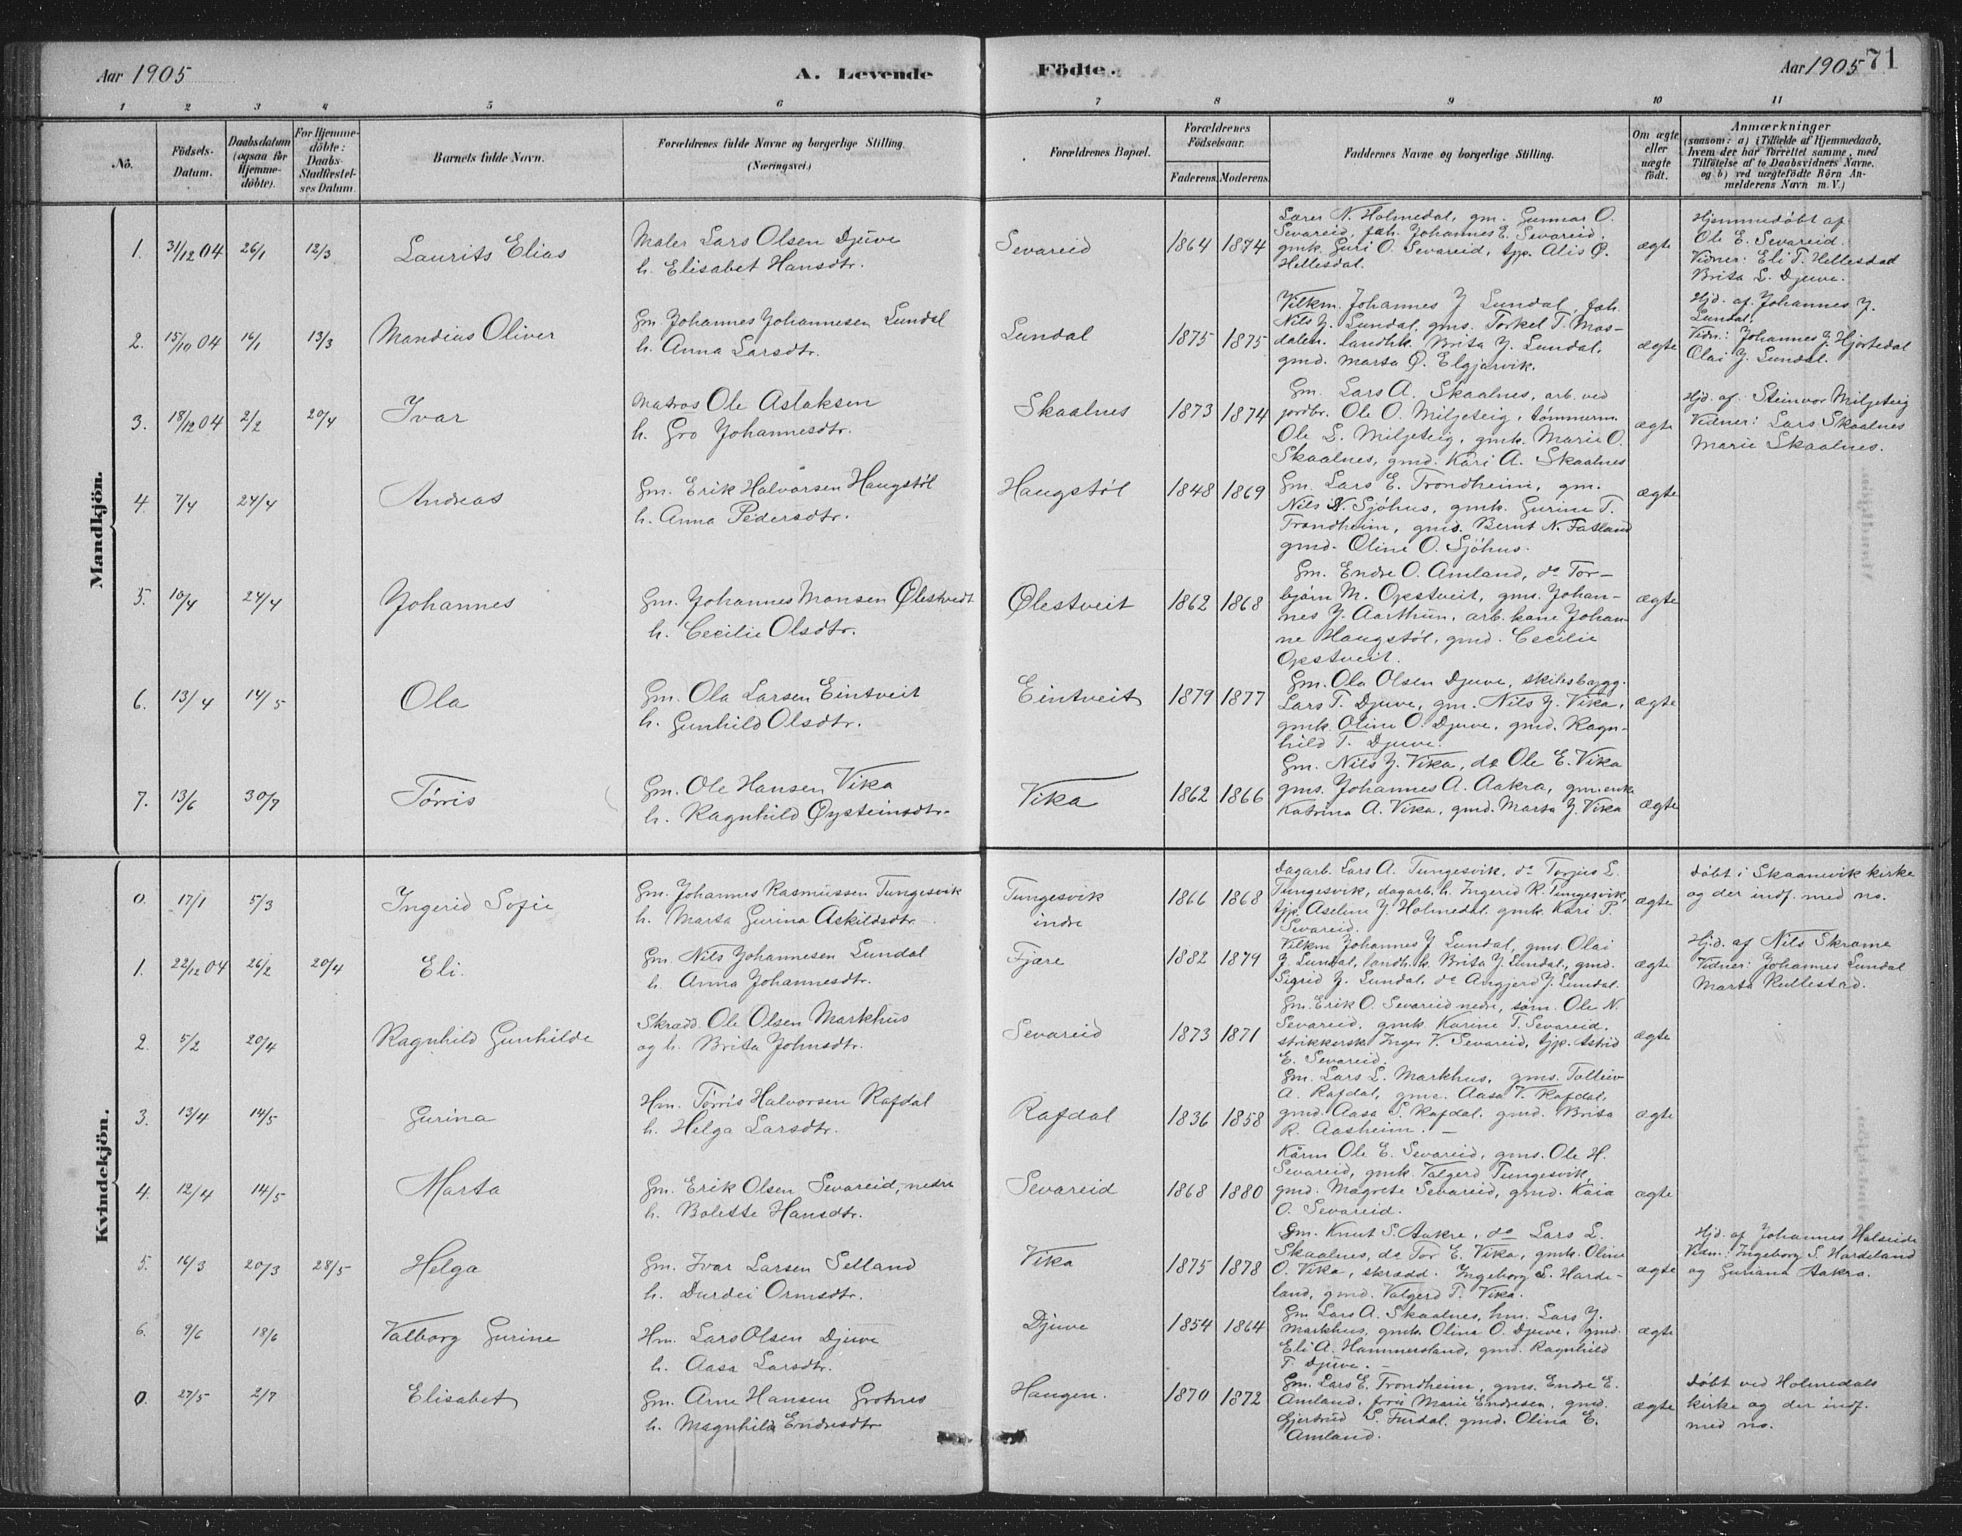 Aar 1905
A. Levende
Födte.
Aar 1905
71
1 2 3 4 5 6 7 8 9 10 11
No.
Födsels-
Datum.
Daabsdatum
(ogsaa for
Hjemme-
döbte).
For Hjemme-
döbte:
Daabs-
Stadfæstel-
ses Datum.
Barnets fulde Navn.
Forældrenes fulde Navne og borgerlige Stilling.
(Næringsvei.)
Forældrenes Bopæl.
Forældrenes
Födselsaar.
Faderens. Moderens.
Faddernes Navne og borgerlige Stilling.
Om ægte
eller
uægte
født.
Anmærkninger
(saasom: a) i Tilfælde af Hjemmedaab,
hvem der har forrettet samme, med
Tilföielse af to Daabsvidners Navne,
og b) ved uægtefödte Börn An-
melderens Navn m. V.)
Mandkjön.
1. 31/12 04 26/1 12/3 Laurits Elias
Maler Lars Olsen Djuve
h. Elisabet Hansdtr.
Sevareid 1864 1874
Lærer N. Holmedal, gm. Gunnar O.
Sevareid, fah. Johannes E. Sevareid,
gmk. Guri O. Sevareid, tjp. Alis Ø.
Hellesdal.
ægte
Hjemmedøbt af
Ole E. Sevareid.
Vidner: Eli T. Hellesdal
Brita L. Djuve.
2. 15/10 04 16/1 13/3 Mandius Oliver
Gm. Johannes Johannesen Lundal
h. Anna Larsdtr.
Lundal 1875 1875
Vilkm. Johannes J. Lundal, fah.
Nils J. Lundal, gms. Torkel T. Mos-
dalen. landhk. Brita J. Lundal,
gmd. Marta Ø. Elgjarvik.
ægte
Hjd. af Johannes J.
Lundal.
Vidn: Johannes J. Hjortedal
Olai J. Lundal.
3. 18/12 04 2/2 20/4 Ivar
Matros Ole Aslaksen
h. Gro Johannesdtr.
Skaalnes 1873 1874
Gm. Lars A. Skaalnes, arb. ved
jordbr. Ole O. Miljeteig, tømmerm.
Ole L. Miljeteig, gmk. Marie O.
Skaalnes, gmd. Kari A. Skaalnes
ægte
Hjd. af: Steinvor Miljeteig
Vidner: Lars Skaalnes
Marie Skaalnes.
4. 7/4 24/4 Andreas
Gm. Erik Halvorsen Haugstøl
h. Anna Pedersdtr.
Haugstøl 1848 1869
Gm. Lars E. Trondheim, gm.
Nils N. Sjøhus, gmk. Gurine T.
Trondheim, gmd. Bernt N. Fatland
gmd. Oline O. Sjøhus.
ægte
5. 10/4 24/4 Johannes
Gm. Johannes Monsen Ølestveit
h. Cecilie Olsdtr.
Ølestveit 1862 1868
Gm. Endre O. Amland, do Tor-
bjørn M. Opstveit, gms. Johan-
nes J. Aarthun, arb. kone Johan-
ne Haugstøl, gmd. Cecilie
Opstveit.
ægte
6. 13/4 14/5 Ola
Gm. Ola Larsen Eintveit
h. Gunhild Olsdtr.
Eintveit 1879 1877
Gm. Ola Olsen Djuve, skibsbygg.
Lars T. Djuve, gm. Nils J. Vika,
gmk. Oline O. Djuve, gmd. Ragn-
hild T. Djuve.
ægte
7. 13/6 30/7 Tørris
Gm. Ole Hansen Vika
h. Ragnhild Øysteinsdtr.
Vika 1862 1866
Gm. Nils J. Vika, do Ole E. Vika
gms. Johannes A. Aakra, gm.enk.
Katrina A. Vika, gmd. Marta J. Vika
ægte
Kvindekjön.
0. 17/1 5/3 Ingerid Sofie
Gm. Johannes Rasmussen Tungesvik
h. Marta Gurina Askildsdtr.
Tungesvik
indre
1866 1868
Dagarb. Lars A. Tungesvik, do Torjus L.
Tungesvik, dagarb. h. Ingerid R. Tungesvik,
tjp. Aseline J. Holmedal. gmk. Kari P.
Sevareid.
ægte
Døbt i Skaanevik kirke
og der indf. med no.
1. 22/12 04 26/2 20/4 Eli.
Gm. Nils Johannesen Lundal
h. Anna Johannesdtr.
Fjære 1882 1879
Vilkm Johannes J Lundal, gms. Olai
J. Lundal, landh. k. Brita J. Lundal, gmd.
Sigrid J. Lundal, do Angjerd J. Lundal.
ægte
Hjd. af Nils Skrame
Vidner: Johannes Lundal
Marta Rullestad.
2. 5/2 20/4 Ragnhild Gunhilde
Skrædd. Ole Olsen Markhus
og h. Brita Johnsdtr.
Sevareid 1873 1871
Gm. Erik O. Sevareid nedre, søm. Ole N.
Sevareid, gmk. Karine T. Sevareid.
strikkersk. Inger V. Sevareid, tjp. Astrid
E. Sevareid.
ægte
3. 13/4 14/5 Gurina
Hm. Tørris Halvorsen Rafdal
h. Helga Larsdtr.
Rafdal 1836 1858
Gm. Lars L. Markhus, gms. Tolleiv
A. Rafdal, Aasa T. Rafdal,
gmd. Aasa S. Rafdal. gmd. Brita
R. Aasheim. —
ægte
4. 12/4 14/5 Marta
Gm. Erik Olsen Sevareid, nedre
h. Bolette Hansdtr.
Sevareid 1868 1880
Kårm Ole E. Sevareid, gms. Ole H.
Sevareid, gmk. Valgerd Tungesvik,
gmd. Magrete Sevareid, gmd. Kaia
O. Sevareid.
ægte
5. 16/3 20/3 28/5 Helga
Gm. Ivar Larsen Selland
h. Durdei Ormsdtr.
Vika 1875 1878
Gm. Knut S. Aakre, do Lars L.
Skaalnes, do Tor E. Vika, gmk. Oline
O. Vika, skrædd. Ingeborg S. Harde-
land, gmd. Valgerd T. Vika.
ægte
Hjd. af Johannes Halseide
Vidn: Ingeborg S. Hardeland
og Guriana Aakra.
6. 9/6 18/6 Valborg Gurine
Hm. Lars Olsen Djuve
h. Aasa Larsdtr.
Djuve 1854 1864
Gm Lars A. Skaalnes, hm. Lars J.
Markhus, gmk. Olina O. Djuve, gmd.
Eli A. Hammersland, gmd. Ragnhild
T. Djuve. —
ægte
0. 27/5 2/7 Elisabet
Gm. Arne Hansen Grotnes
h. Magnhilda Endresdtr
Haugen. 1870 1872
Gm. Lars E. Trondheim, gms. Endre E.
Amland, frøk Marie Endresen, gmd.
Gjertrud S. Furdal, gmd. Olina E.
Amland.
ægte
Døbt ved Holmedals
kirke og der indf.
med no.